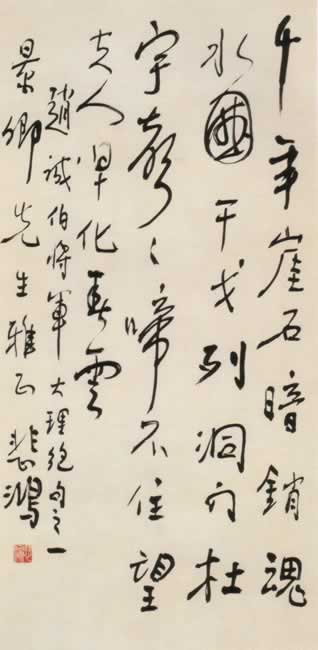 千年崖石暗銷魂
水國干戈列洞門杜
宇聲〻啼不住望
夫人早化雲
趙誠伯將軍大理絕句之一
景卿先生雅正 悲鴻